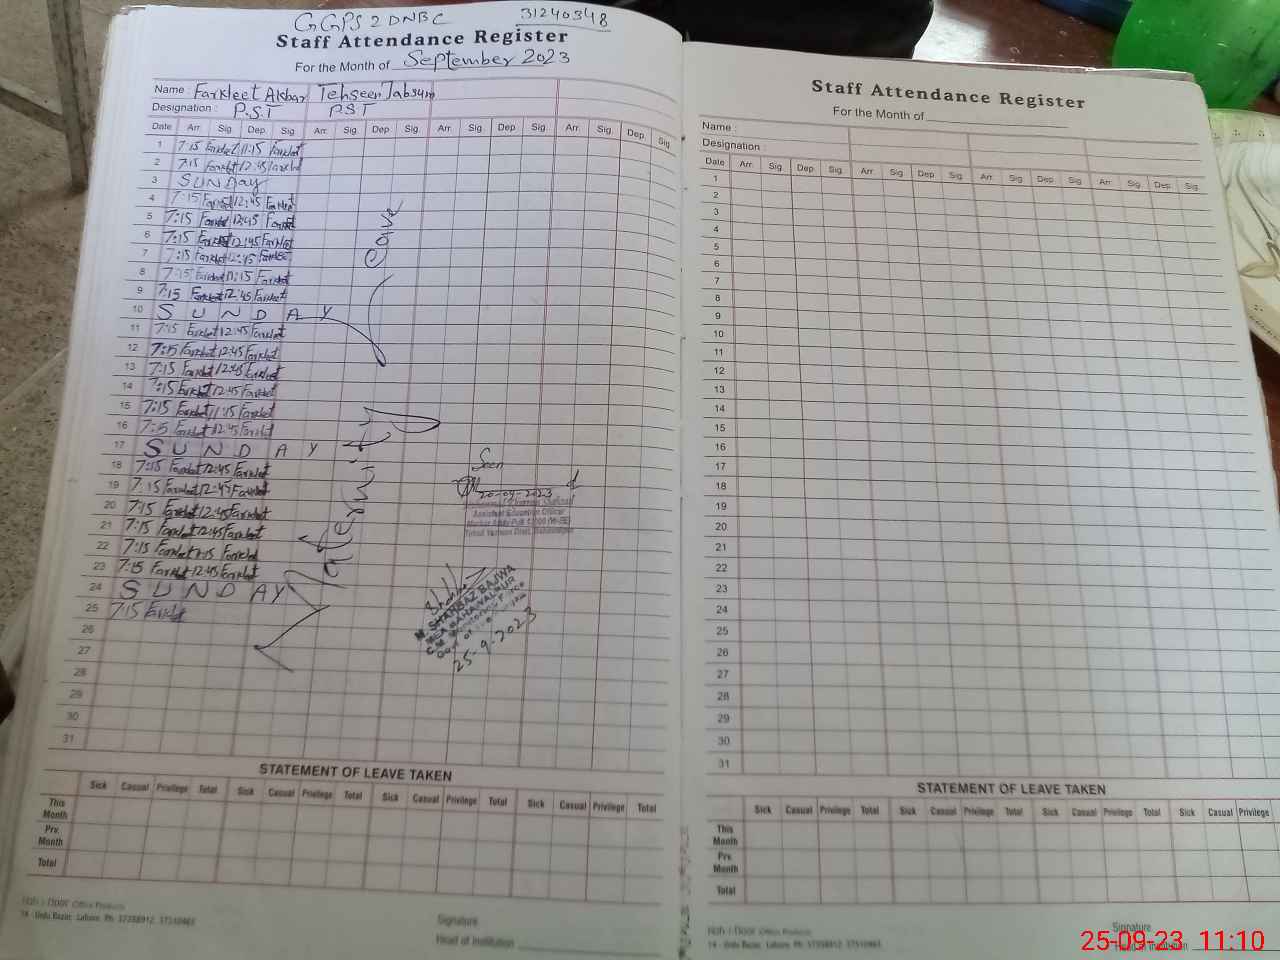 GGPS 2 DNBC 31240348
Staff Attendance Register
For the Month of September 2023
Name : Farkleet Akbar Tehseen Tabsum
Designation : P.S.T P.S.T
Date Arr. Sig. Dep. Sig. Arr. Sig. Dep. Sig. Arr. Sig. Dep. Sig. Arr. Sig. Dep. Sig.
1 7:15 Farkleet 11:15 Farkleet
2 7:15 Farkleet 12:45 Farkleet
3 SUNDay
4 7:15 Farkleet 12:45 Farkleet
5 7:15 Farkleet 12:45 Farkleet
6 7:15 Farkleet 12:45 Farkleet
7 7:15 Farkleet 12:45 Farkleet
8 7:15 Farkleet 11:15 Farkleet
9 7:15 Farkleet 12:45 Farkleet
10 SUNDAY
11 7:15 Farkleet 12:45 Farkleet
12 7:15 Farkleet 12:45 Farkleet
13 7:15 Farkleet 12:45 Farkleet
14 7:15 Farkleet 12:45 Farkleet
15 7:15 Farkleet 11:15 Farkleet
16 7:15 Farkleet 12:45 Farkleet
17 SUNDAY
18 7:15 Farkleet 12:45 Farkleet
19 7:15 Farkleet 12:45 Farkleet
20 7:15 Farkleet 12:45 Farkleet
21 7:15 Farkleet 12:45 Farkleet
22 7:15 Farkleet 11:15 Farkleet
23 7:15 Farkleet 12:45 Farkleet
24 SUNDAY
25 7:15 Farkleet
26
27
28
29
30
31
Seen
20-09-2023
Assistant Education Officer
M. SHAHBAZ BAJWA
MEA BAHAWALPUR
25-9-2023
STATEMENT OF LEAVE TAKEN
Sick Casual Privilege Total Sick Casual Privilege Total Sick Casual Privilege Total Sick Casual Privilege Total
This Month
Prv. Month
Total
14 - Urdu Bazar, Lahore. Ph: 37358912, 37310461
Signature
Head of Institution
Staff Attendance Register
For the Month of
Name :
Designation :
Date Arr. Sig. Dep. Sig. Arr. Sig. Dep. Sig. Arr. Sig. Dep. Sig. Arr. Sig. Dep. Sig.
1
2
3
4
5
6
7
8
9
10
11
12
13
14
15
16
17
18
19
20
21
22
23
24
25
26
27
28
29
30
31
STATEMENT OF LEAVE TAKEN
Sick Casual Privilege Total Sick Casual Privilege Total Sick Casual Privilege Total Sick Casual Privilege
This Month
Prv. Month
Total
14 - Urdu Bazar, Lahore. Ph: 37358912, 37310461
Signature
25-09-23 11:10